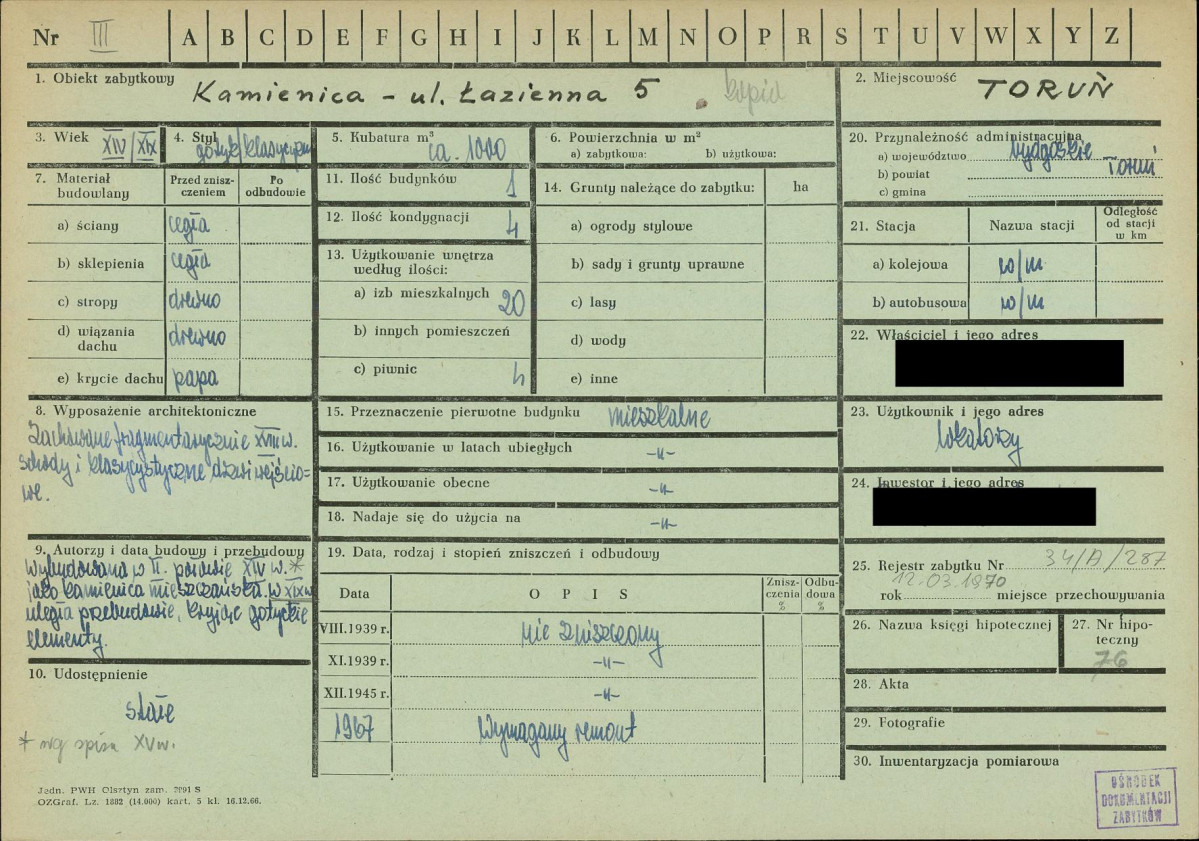 Nr III A B C D E F G H I J K L M N O P R S T U V W X Y Z
1. Obiekt zabytkowy Kamienica - ul. Łazienna 5 kopia
2. Miejscowość TORUŃ
3. Wiek XIV/XIX
4. Styl gotyk/klasycyzm
5. Kubatura m³ ca. 1000
6. Powierzchnia w m²
a) zabytkowa: b) użytkowa:
7. Materiał budowlany
Przed zniszczeniem
Po odbudowie
a) ściany cegła
b) sklepienia cegła
c) stropy drewno
d) wiązania dachu drewno
e) krycie dachu papa
8. Wyposażenie architektoniczne
Zachowane fragmentarycznie XVIII w.
schody i klasycystyczne drzwi wejścio-
we.
9. Autorzy i data budowy i przebudowy
Wybudowana w II. połowie XIV w.*
jako kamienica mieszczańska. w XIX w
uległa przebudowie, kryjąc gotyckie
elementy.
10. Udostępnienie
stałe
* wg spisu XV w.
11. Ilość budynków 1
12. Ilość kondygnacji 4
13. Użytkowanie wnętrza
według ilości:
a) izb mieszkalnych 20
b) innych pomieszczeń
c) piwnic 4
14. Grunty należące do zabytku: ha
a) ogrody stylowe
b) sady i grunty uprawne
c) lasy
d) wody
e) inne
15. Przeznaczenie pierwotne budynku mieszkalne
16. Użytkowanie w latach ubiegłych -"-
17. Użytkowanie obecne -"-
18. Nadaje się do użycia na -"-
19. Data, rodzaj i stopień zniszczeń i odbudowy
Data OPIS Zniszczenia % Odbudowa %
VIII.1939 r. nie zniszczony
XI.1939 r. -"-
XII.1945 r. -"-
1967 Wymagany remont
20. Przynależność administracyjna
a) województwo bydgoskie
b) powiat Toruń
c) gmina
21. Stacja Nazwa stacji Odległość od stacji w km
a) kolejowa w/m
b) autobusowa w/m
22. Właściciel i jego adres
23. Użytkownik i jego adres
lokatorzy
24. Inwestor i jego adres
25. Rejestr zabytku Nr 34/A/287
rok 12.03.1970 miejsce przechowywania
26. Nazwa księgi hipotecznej
27. Nr hipo-
teczny
76
28. Akta
29. Fotografie
30. Inwentaryzacja pomiarowa
OŚRODEK
DOKUMENTACJI
ZABYTKÓW
Jedn. PWH Olsztyn zam. 7091 S
OZGraf. Lz. 1882 (14.000) kart. 5 kl. 16.12.66.